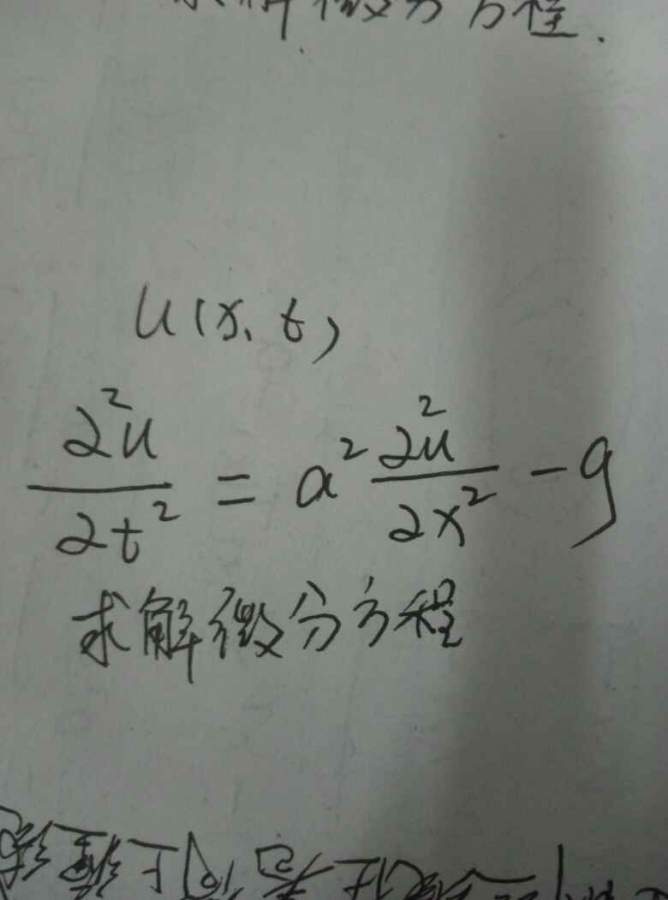 求解微分方程.
u(x,t)
∂²u/∂t² = a² ∂²u/∂x² - g
求解微分方程